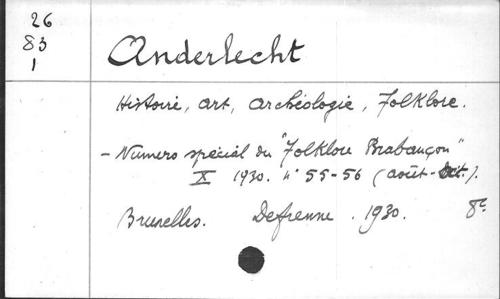 26
83
1
Anderlecht
Histoire, art, archéologie, Folklore.
- Numero spécial du "Folklore Brabançon"
X 1930. n° 55-56 (août-oct.).
Bruxelles. Defrenne. 1930. 8°